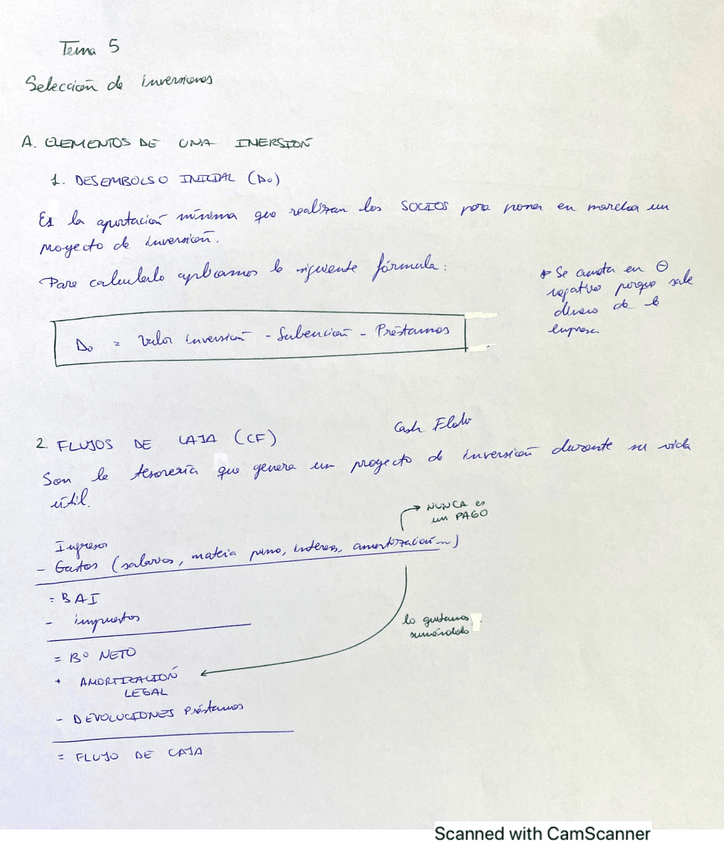 Tema 5
Selección de inversiones
A. ELEMENTOS DE UNA INERSIÓN
1. DESEMBOLSO INICIAL (D₀)
Es la aportación mínima que realizan los SOCIOS para poner en marcha un
proyecto de inversión.
Para calcularlo aplicamos la siguiente fórmula:
* Se anota en ⊖
negativo porque sale
dinero de la
empresa
D₀ = Valor inversión - Subención - Préstamos
2. FLUJOS DE CAJA (CF) Cash Flow
Son la tesorería que genera un proyecto de inversión durante su vida
útil.
→ NUNCA es
un PAGO
Ingresos
- Gastos (salarios, materia prima, intereses, amortización...)
= BAI
- impuestos
lo quitamos
sumándolo
= Bº NETO
+ AMORTIZACIÓN
LEGAL
- DEVOLUCIONES Préstamos
= FLUJO DE CAJA
Scanned with CamScanner